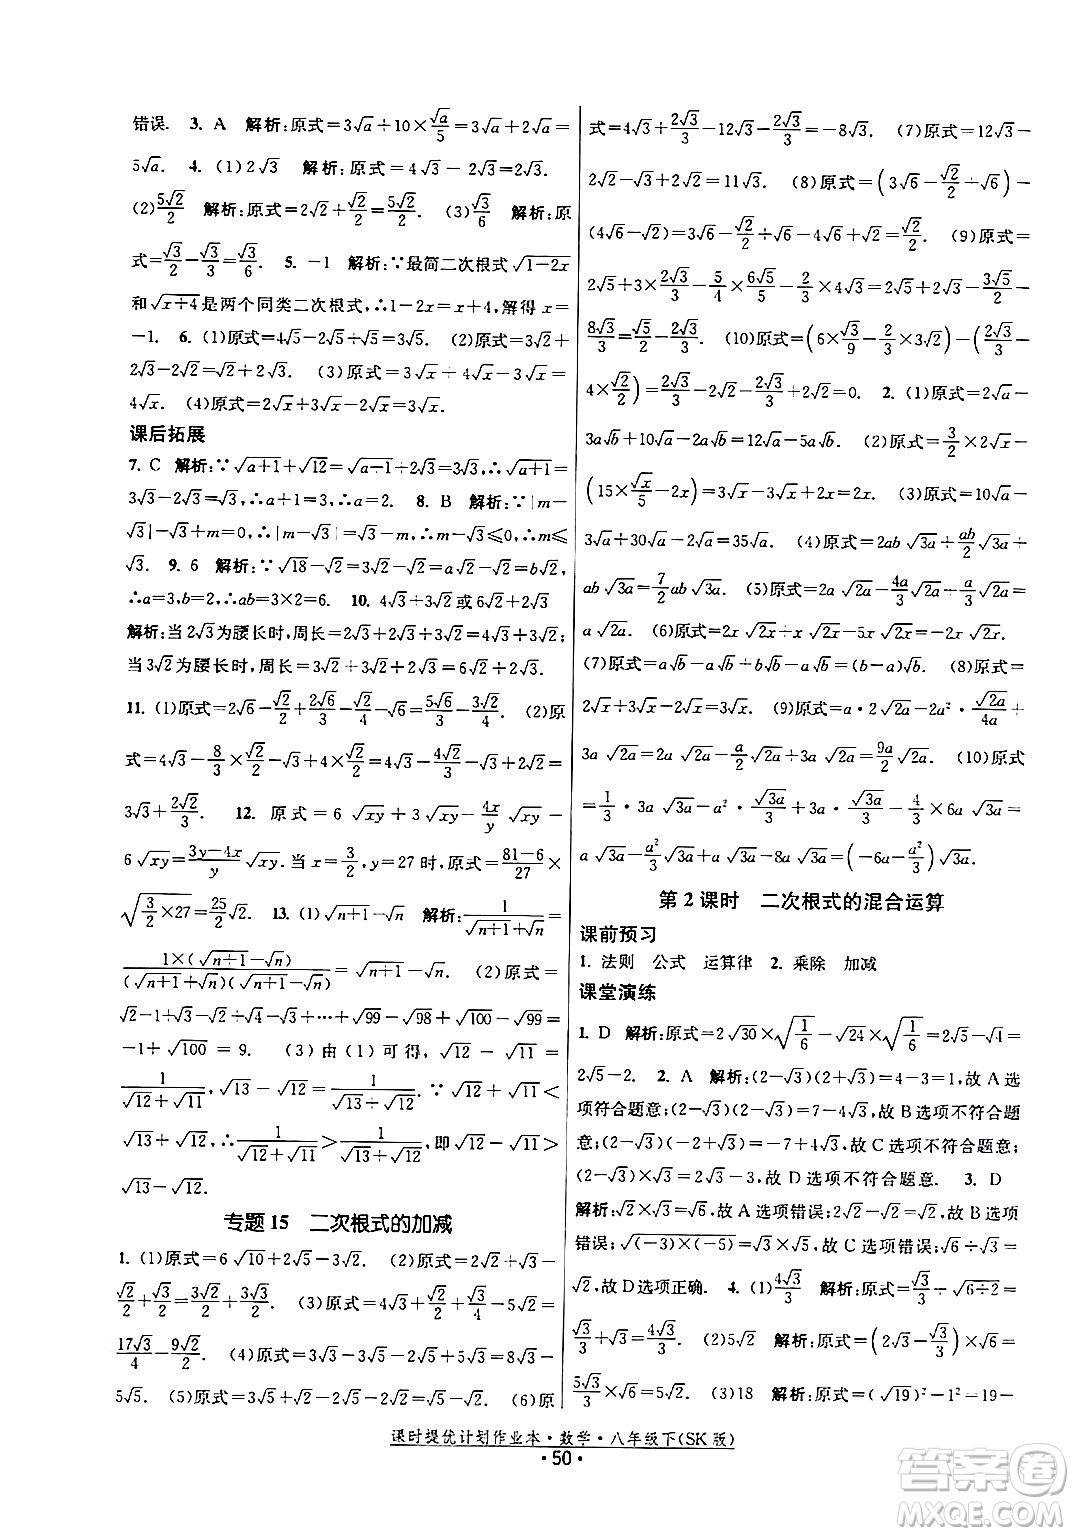 错误. 3. A 解析:原式=3√a+10×√a/5=3√a+2√a=
5√a. 4. (1)2√3 解析:原式=4√3-2√3=2√3.
(2)5√2/2 解析:原式=2√2+√2/2=5√2/2. (3)√3/6 解析:原
式=√3/2-√3/3=√3/6. 5. -1 解析:∵最简二次根式√(1-2x)
和√(x+4)是两个同类二次根式,∴1-2x=x+4,解得x=
-1. 6. (1)原式=4√5-2√5+√5=3√5. (2)原式=2√2+
2√3-2√2=√2+2√3. (3)原式=3√x+4√x-3√x=
4√x. (4)原式=2√x+3√x-2√x=3√x.
课后拓展
7. C 解析:∵√(a+1)+√12=√(a+1)+2√3=3√3,∴√(a+1)=
3√3-2√3=√3,∴a+1=3,∴a=2. 8. B 解析:∵|m-
√3|-√3+m=0,∴|m-√3|=√3-m,∴m-√3≤0,∴m≤
√3. 9. 6 解析:∵√18-√2=3√2-√2=2√2=a√2-√2=b√2,
∴a=3,b=2,∴ab=3×2=6. 10. 4√3+√2或6√2+2√3
解析:当2√3为腰长时,周长=2√3+2√3+√2=4√3+√2;
当3√2为腰长时,周长=3√2+3√2+2√3=6√2+2√3.
11. (1)原式=2√6-√2/2+2√6/3-√2/4-√6=5√6/3-3√2/4. (2)原
式=4√3-8/3×√2/2+2√3/3×√2/2=4√3-4√2/3-4√3+2√2=
4√2/3+2√2/3. 12. 原式=6√xy+3√xy-4x/y√xy-
6√xy=(3y-4x)/y√xy.当x=3/2,y=27时,原式=(81-6)/27×
√(3/2×27)=25/2√2. 13. (1)√(n+1)-√n 解析:1/(√(n+1)+√n)=
1×(√(n+1)-√n)/((√(n+1)+√n)(√(n+1)-√n))=√(n+1)-√n. (2)原式=
√2-1+√3-√2+⋯+√99-√98+√100-√99=
-1+√100=9. (3)由(1)可得,√12-√11=
1/(√12+√11),√13-√12=1/(√13+√12).∵√12+√11<
√13+√12,∴1/(√12+√11)>1/(√13+√12),即√12-√11>
√13-√12.
专题15 二次根式的加减
1. (1)原式=6√10+2√5-3√2. (2)原式=2√2+√3-
√2/2+√3/2=√2/2+2√3. (3)原式=4√3+√2/2+√3/4-5√2=
17√3/4-9√2/2. (4)原式=3√3-4√5+5√3=8√3-
5√5. (5)原式=3√5+2√5-4√5=√5. (6)原
式=4√3+2√3/3-12√3-2√3/3=-8√3. (7)原式=12√3-
2√3-4√2=11√3. (8)原式=(3√6-√2/2+√6)-
(4√6-√2)=3√6-√2/2+√6-4√6+√2=√2/2. (9)原式=
2√5+3×2√3/3-5/4×6√5/5-4×√3/3=2√5+2√3-3√5/2=
8√3/3=√5/2-2√3/3. (10)原式=(6×√3/9-2/3×3√2)-(2√3/3-
4×√2/2)=2√3/3-2√2-2√3/3+2√2=0. 2. (1)原式=2√a-
3a√b+10√2a=12√a-5a√b. (2)原式=(3/2×2√x+
(15×√x/5-2x)=3√x-3√x+2x=2x. (3)原式=10√a-
3√5a-2√a=35√a. (4)原式=2ab√3a+ab/2√3a+
ab√3a=7/2ab√3a. (5)原式=2a√2a-4a/3√a+a/3√a=
a√2a. (6)原式=2x√2x+x√2x-2x√2x=x√2x.
(7)原式=a√b-a√b+b√b=(b-a)√b. (8)原式=
2√x+3√x-5√x=0. (9)原式=a·2√2a-2a²·√2a/4a+
3a√2a=2a√2a-a/2√2a+3a√2a=9a/2√2a. (10)原式
=1/3·3a√3a-2/a·a√3a-3/4a·√3a/3-4/3×6a√3a=
a√3a-a²/3√3a+a√3a-8a√3a=(-6a-a²/3)√3a.
第2课时 二次根式的混合运算
课前预习
1. 法则 公式 运算律 2. 乘除 加减
课堂演练
1. D 解析:原式=2√30×√(1/6)-√24×√(1/6)=2√5-√4=
2√5-2. 2. A 解析:(2-√3)(2+√3)=4-3=1,故A选
项符合题意;(2-√3)(2-√3)=7-4√3,故B选项不符合题
意;(2-√3)+(-2+√3)=0,故C选项不符合题意;
(2-√3)×√3=2√3-3,故D选项不符合题意. 3. D
解析:√2×√3=√6,故A选项错误;2√2-√2=√2,故B选项
错误;√((-3)×(-5))=√15,故C选项错误;√6÷√3=
√2,故D选项正确. 4. (1)4√3/3 解析:原式=√3/3+√(6÷2)=
√3/3+√3=4√3/3. (2)5√2 解析:原式=(2√3-√3/3)×√6=
5√3/3×√6=5√2. (3)18 解析:原式=(√19)²-1²=19-
课时提优计划作业本·数学·八年级下(SK版)
·50·
答案圈
MXQE.COM